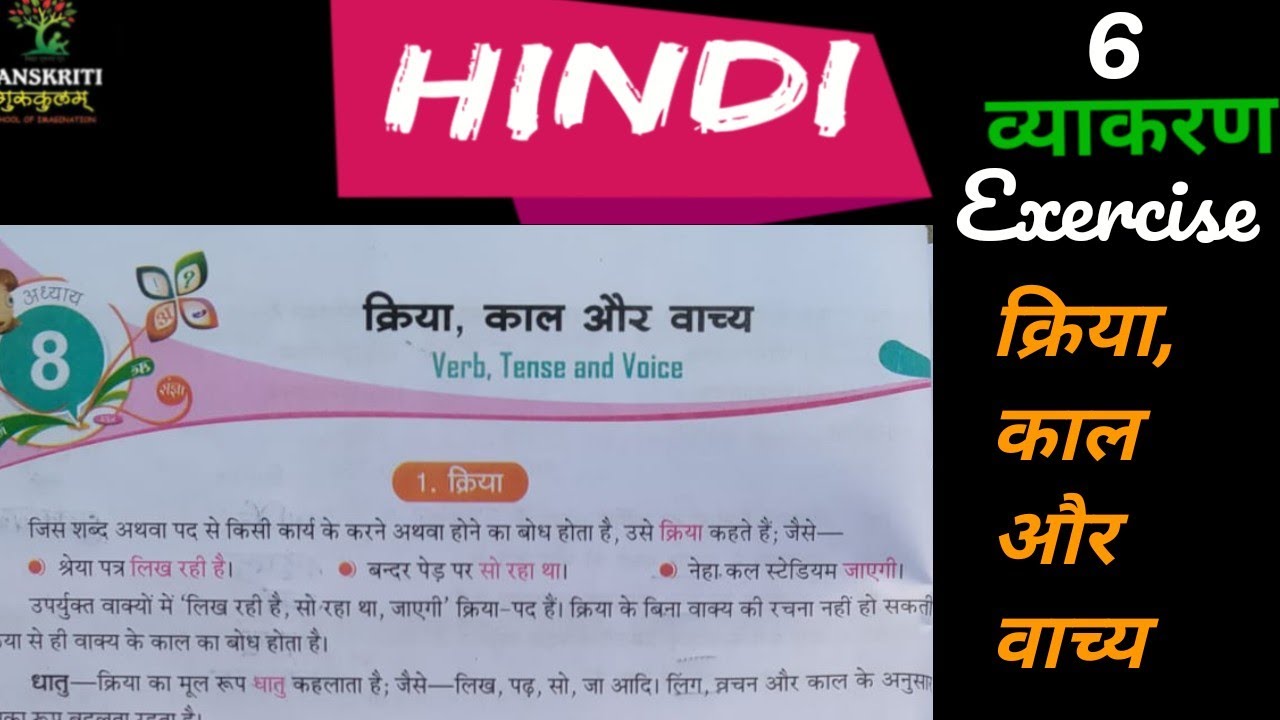 ANSKRITI
गुरुकुलम्
HOOL OF IMAGINATION
HINDI
6
व्याकरण
Exercise
क्रिया,
काल
और
वाच्य
अध्याय
8
संज्ञा
क्रिया, काल और वाच्य
Verb, Tense and Voice
1. क्रिया
जिस शब्द अथवा पद से किसी कार्य के करने अथवा होने का बोध होता है, उसे क्रिया कहते हैं; जैसे—
श्रेया पत्र लिख रही है। बन्दर पेड़ पर सो रहा था। नेहा कल स्टेडियम जाएगी।
उपर्युक्त वाक्यों में 'लिख रही है, सो रहा था, जाएगी' क्रिया-पद हैं। क्रिया के बिना वाक्य की रचना नहीं हो सकती
या से ही वाक्य के काल का बोध होता है।
धातु—क्रिया का मूल रूप धातु कहलाता है; जैसे—लिख, पढ़, सो, जा आदि। लिंग, वचन और काल के अनुसार
रूप बदलता रहता है।